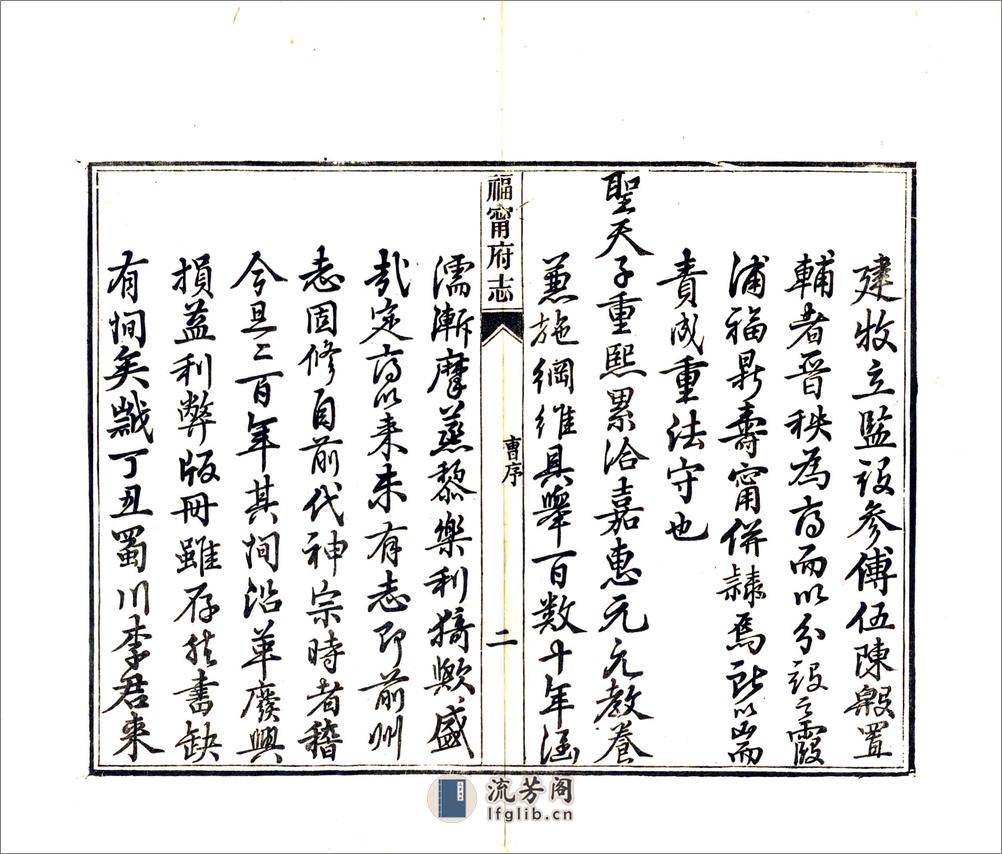 建牧立監設參傅伍陳殷置
輔者晉秩為府而以分設之霞
浦福鼎壽甯併隸焉所以耑
責成重法守也
聖天子重熙累洽嘉惠元元教養
兼施綱維具舉百數十年涵
福甯府志
曹序
二
濡漸摩蒸黎樂利猗歟盛
哉定府以来未有志即前州
志固修自前代神宗時者稽
今且二百年其間沿革廢興
損益利弊版冊雖存然書缺
有間矣歲丁丑蜀川李君来
流芳阁
lfglib.cn